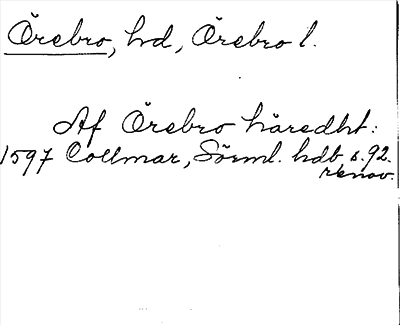 Örebro, hd, Örebro l.
Af Örebro häredht:
1597 Collmar, Sörml. hdb, s. 92.
renov.